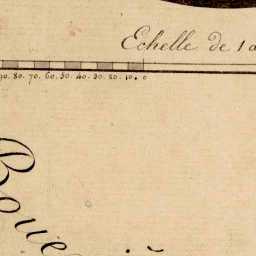 Echelle de 1 a
90. 80. 70. 60. 50. 40. 30. 20. 10. 0
Boue